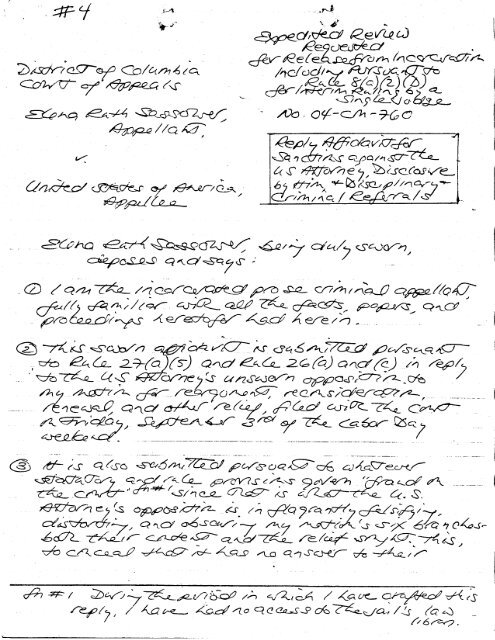 #4
Expedited Review
Requested
for Release from Incarceration
Including Pursuant to
Rule 8(a)(2)(D)
for Interim Ruling by a
Single Judge
No. 04-CM-760
District of Columbia
Court of Appeals
Elena Ruth Sassower,
Appellant,
v.
United States of America,
Appellee
Reply Affidavit for
Sanctions against the
US Attorney, Disclosure
by Him, & Disciplinary &
Criminal Referrals
Elena Ruth Sassower, being duly sworn,
deposes and says:
① I am the incarcerated pro se criminal appellant,
fully familiar with all the facts, papers, and
proceedings heretofor had herein.
② This sworn affidavit is submitted pursuant
to Rule 27(a)(5) and Rule 26(a) and (c) in reply
to the U.S. Attorney's unsworn opposition to
my motion for reargument, reconsideration,
renewal, and other relief, filed with the Court
on Friday, September 3rd of the Labor Day
weekend.
③ It is also submitted pursuant to whatever
statutory and rule provisions govern "fraud on
the court" fn#1 since that is what the U.S.
Attorney's opposition is, in flagrantly falsifying,
distorting, and obscuring my motion's six branches-
both their content and the relief sought. This,
to conceal that it has no answer to their
fn #1 During the period in which I have crafted this
reply, I have had no access to the jail's law
library.